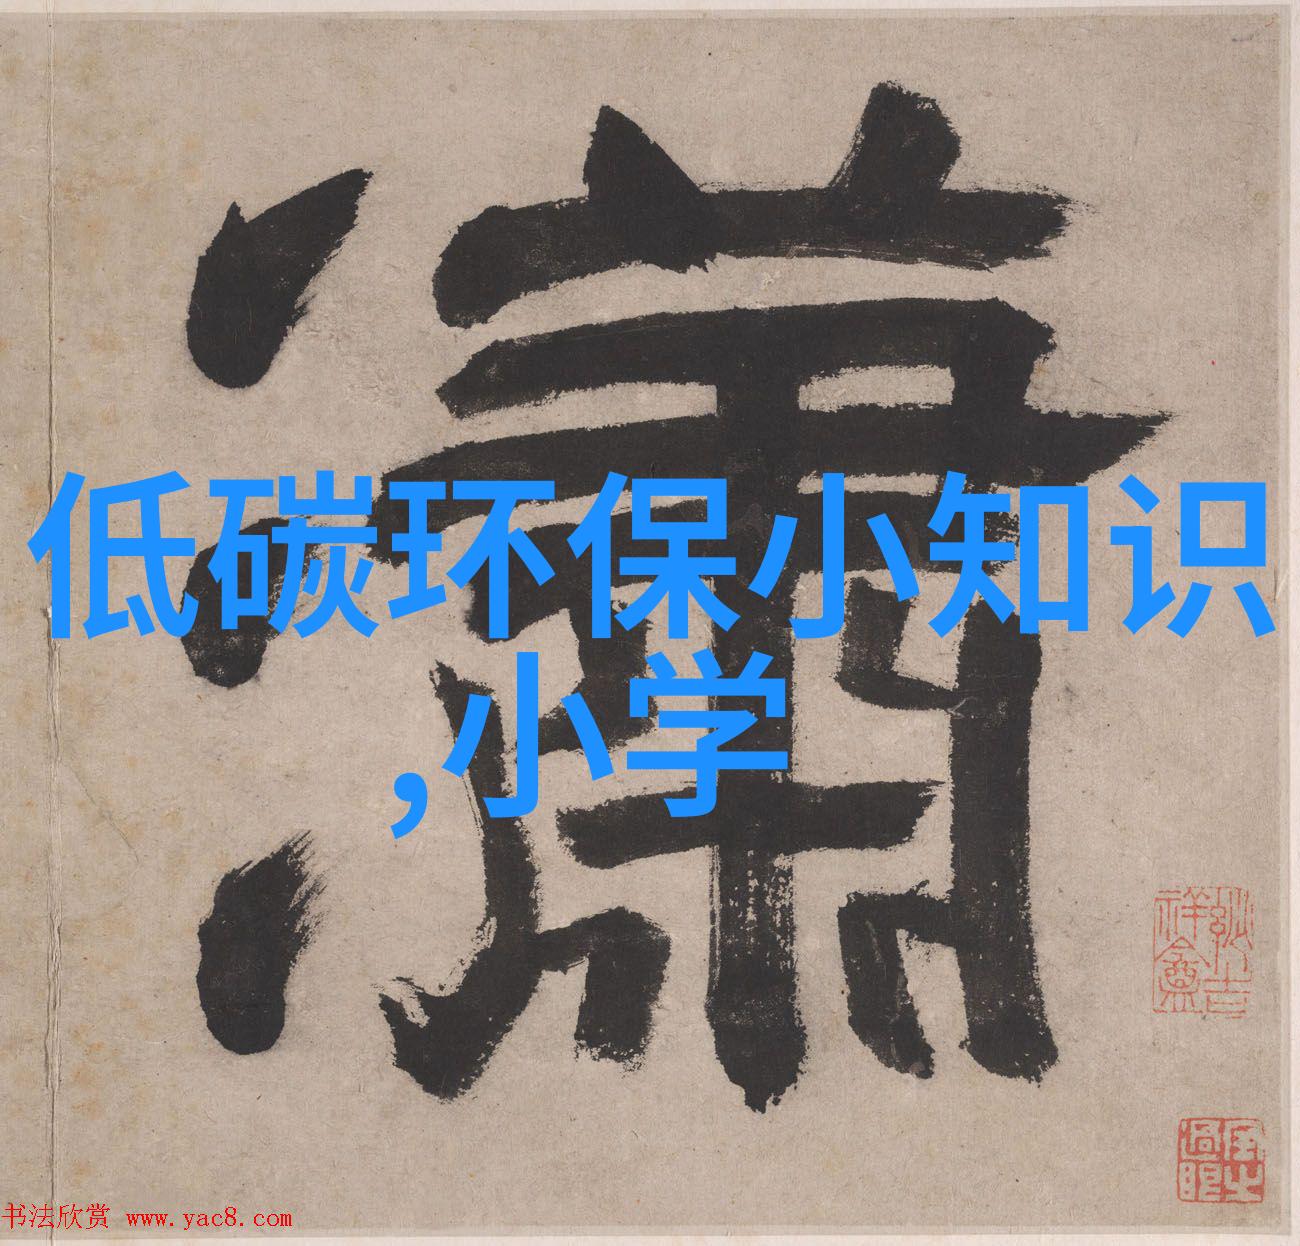 瀟
低碳环保小知识
,小学
书法欣赏 www.yac8.com